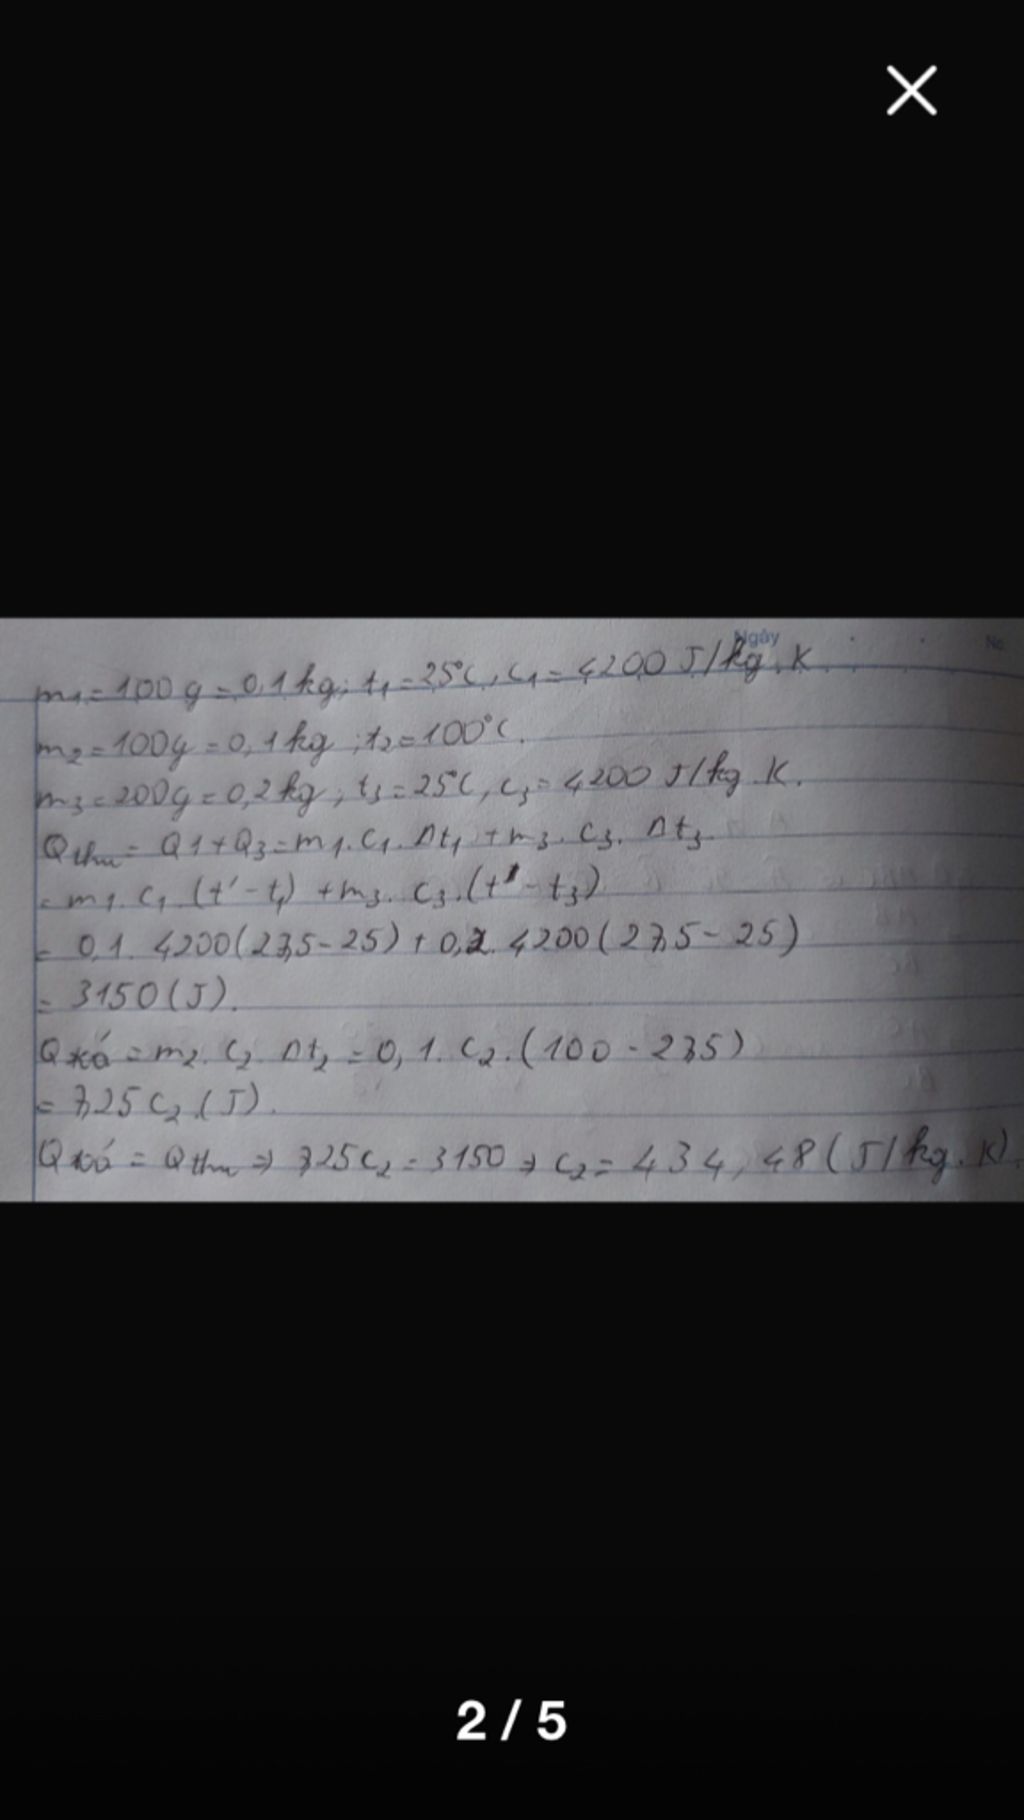 Ngày
No.
m₁ = 100g = 0,1kg; t₁ = 25°C, c₁ = 4200 J/kg.K
m₂ = 100g = 0,1kg; t₂ = 100°C.
m₃ = 200g = 0,2kg; t₃ = 25°C, c₃ = 4200 J/kg.K.
Qthu = Q1 + Q3 = m₁.c₁.Δt₁ + m₃.c₃.Δt₃.
= m₁.c₁.(t' - t₁) + m₃.c₃.(t' - t₃)
= 0,1.4200(27,5 - 25) + 0,2.4200(27,5 - 25)
= 3150(J).
Qtoả = m₂.c₂.Δt₂ = 0,1.c₂.(100 - 27,5)
= 7,25c₂(J).
Qtoả = Qthu ⇒ 7,25c₂ = 3150 ⇒ c₂ = 434,48(J/kg.K).
2 / 5